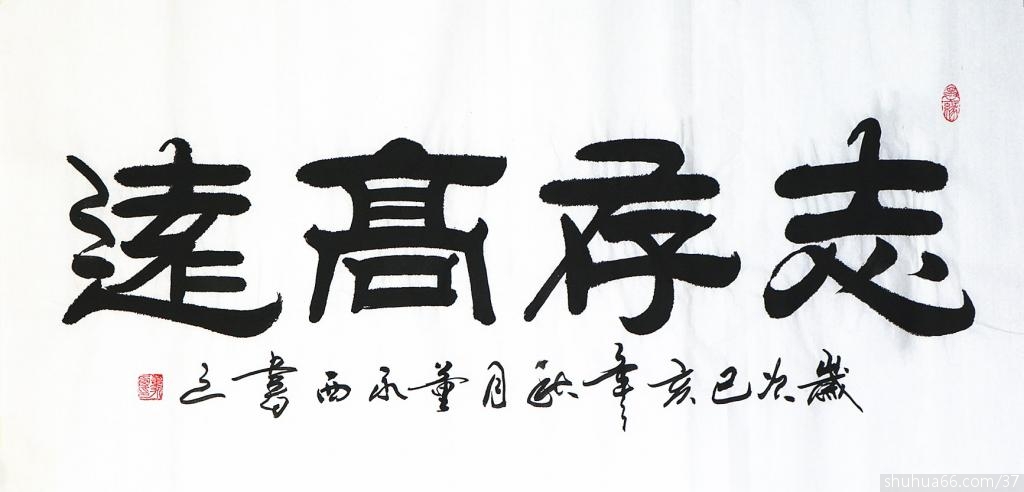 志存高遠
歲次己亥年秋月董永西書之
shuhua66.com/37